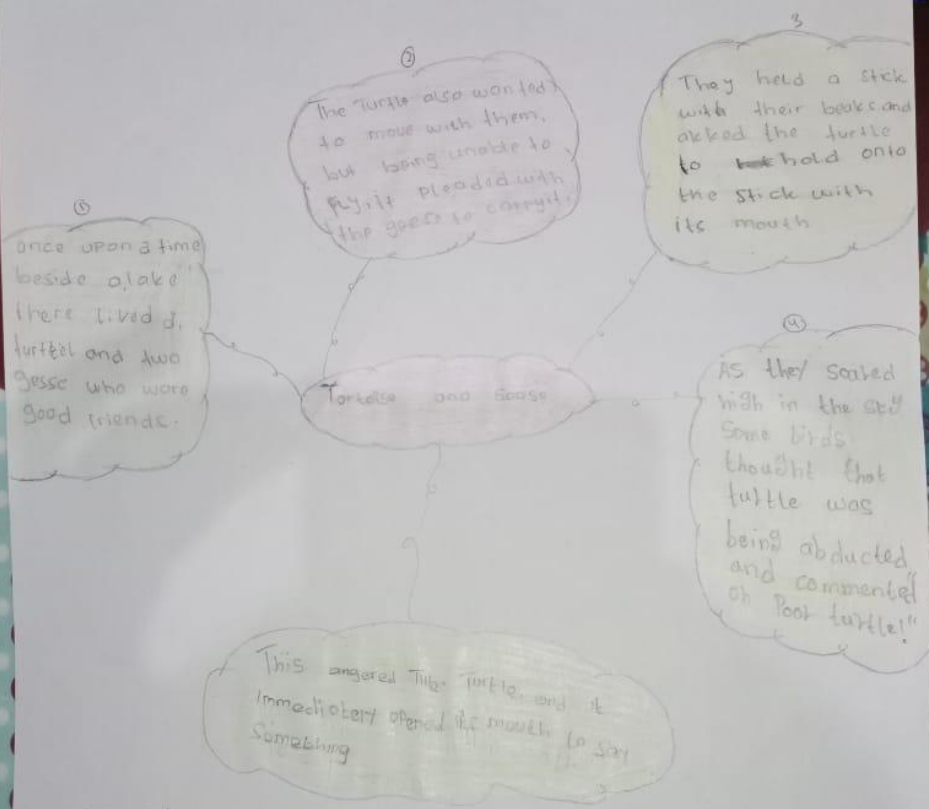 ①
once upon a time
beside a lake
there lived a
turteel and two
gesse who were
good friends.
②
The Turtle also wanted
to move with them,
but being unable to
fly, it pleaded with
the geese to carry it.
3
They held a stick
with their beaks and
akked the turtle
to hold onto
the stick with
its mouth
④
As they soared
high in the sky
Some birds
thought that
turtle was
being abducted
and commented
"oh Poor turtle!"
Tortoise and Goose
This angered The Turtle, and it
immediotery opened its mouth to say
Something